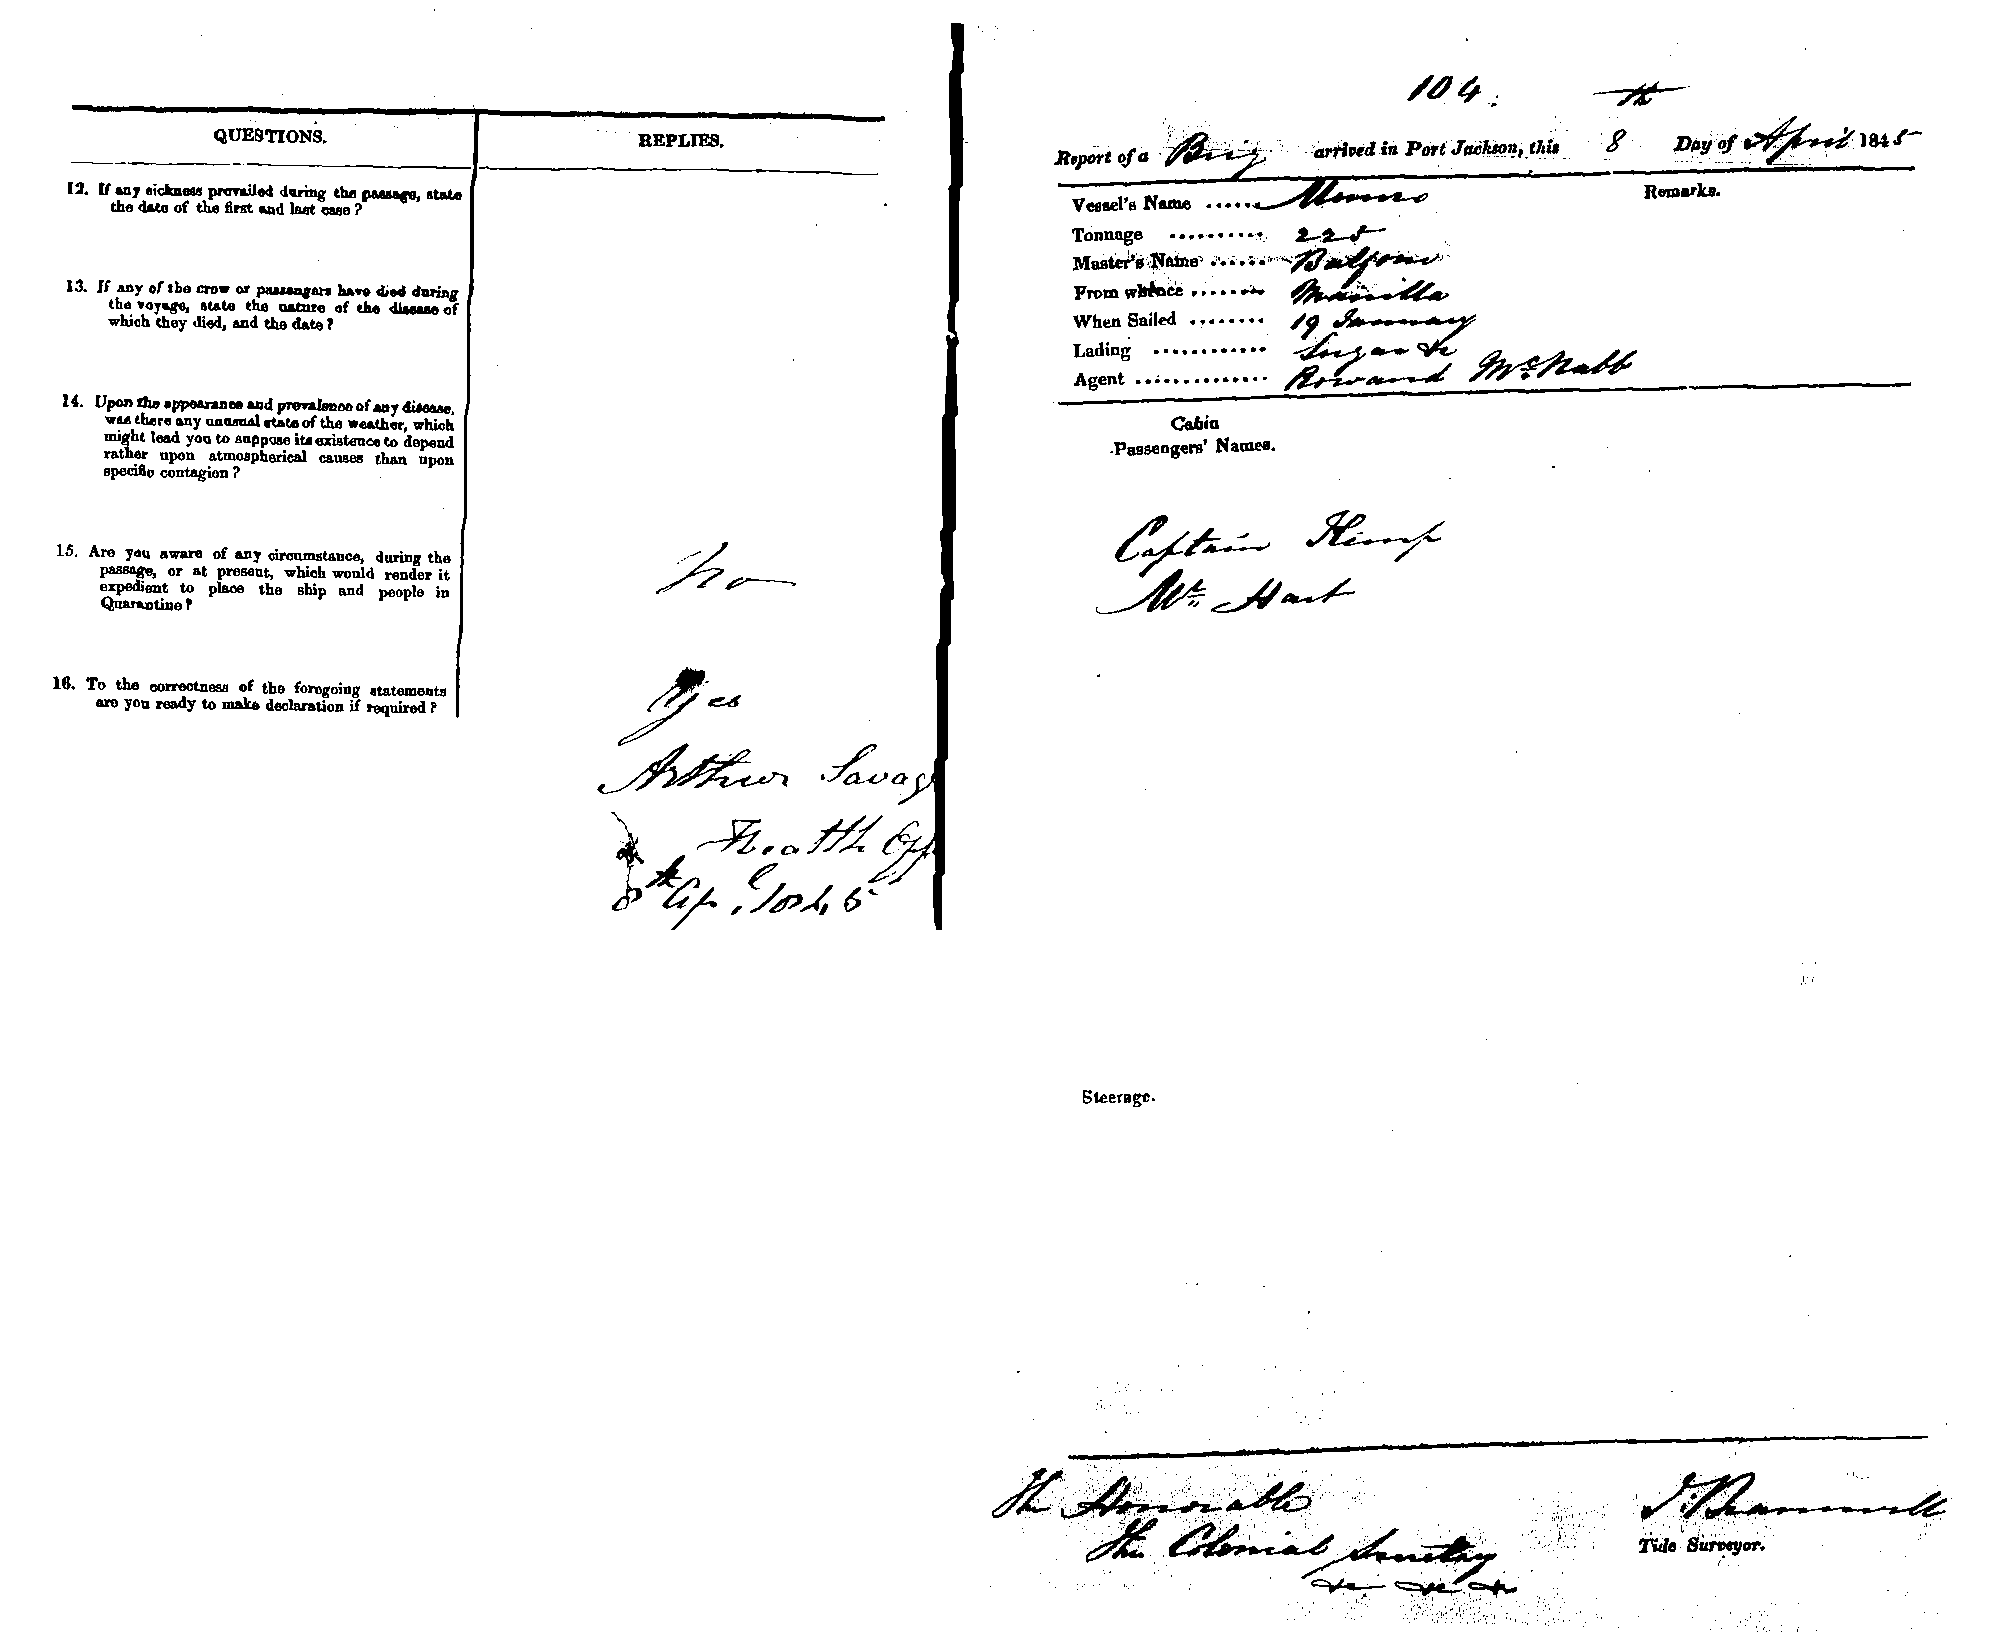 QUESTIONS.
REPLIES.
12. If any sickness prevailed during the passage, state
the date of the first and last case ?
13. If any of the crew or passengers have died during
the voyage, state the nature of the disease of
which they died, and the date ?
14. Upon the appearance and prevalence of any disease,
was there any unusual state of the weather, which
might lead you to suppose its existence to depend
rather upon atmospherical causes than upon
specific contagion ?
15. Are you aware of any circumstance, during the
passage, or at present, which would render it
expedient to place the ship and people in
Quarantine ?
No
16. To the correctness of the foregoing statements
are you ready to make declaration if required ?
Yes
Arthur Savag
Health Off
8th Ap. 1845
104
th
Report of a Brig arrived in Port Jackson, this 8 Day of April 1845
Vessel's Name ...... Munro
Remarks.
Tonnage .......... 225
Master's Name ...... Balfour
From whence ........ Manilla
When Sailed ........ 19 January
Lading ............ Sugar &c
Agent .............. Rowand McNabb
Cabin
Passengers' Names.
Captain Kemp
Mr Hart
Steerage.
The Honorable
The Colonial Secretary
&c &c &c
Tide Surveyor.